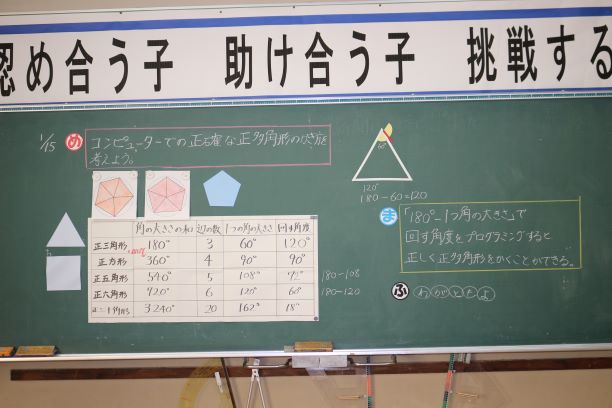 認め合う子 助け合う子 挑戦する
1/15 め コンピューターでの正確な正多角形のかき方を
考えよう。
60°
120°
180-60=120
角の大きさの和 辺の数 1つの角の大きさ 回す角度
正三角形 180° 3 60° 120°
正方形 360° 4 90° 90°
正五角形 540° 5 108° 72° 180-108
正六角形 720° 6 120° 60° 180-120
正二十角形 3240° 20 162° 18°
ま 「180°-1つ角の大きさ」で
回す角度をプログラミングすると
正しく正多角形をかくことができる。
ふ わかとたよ